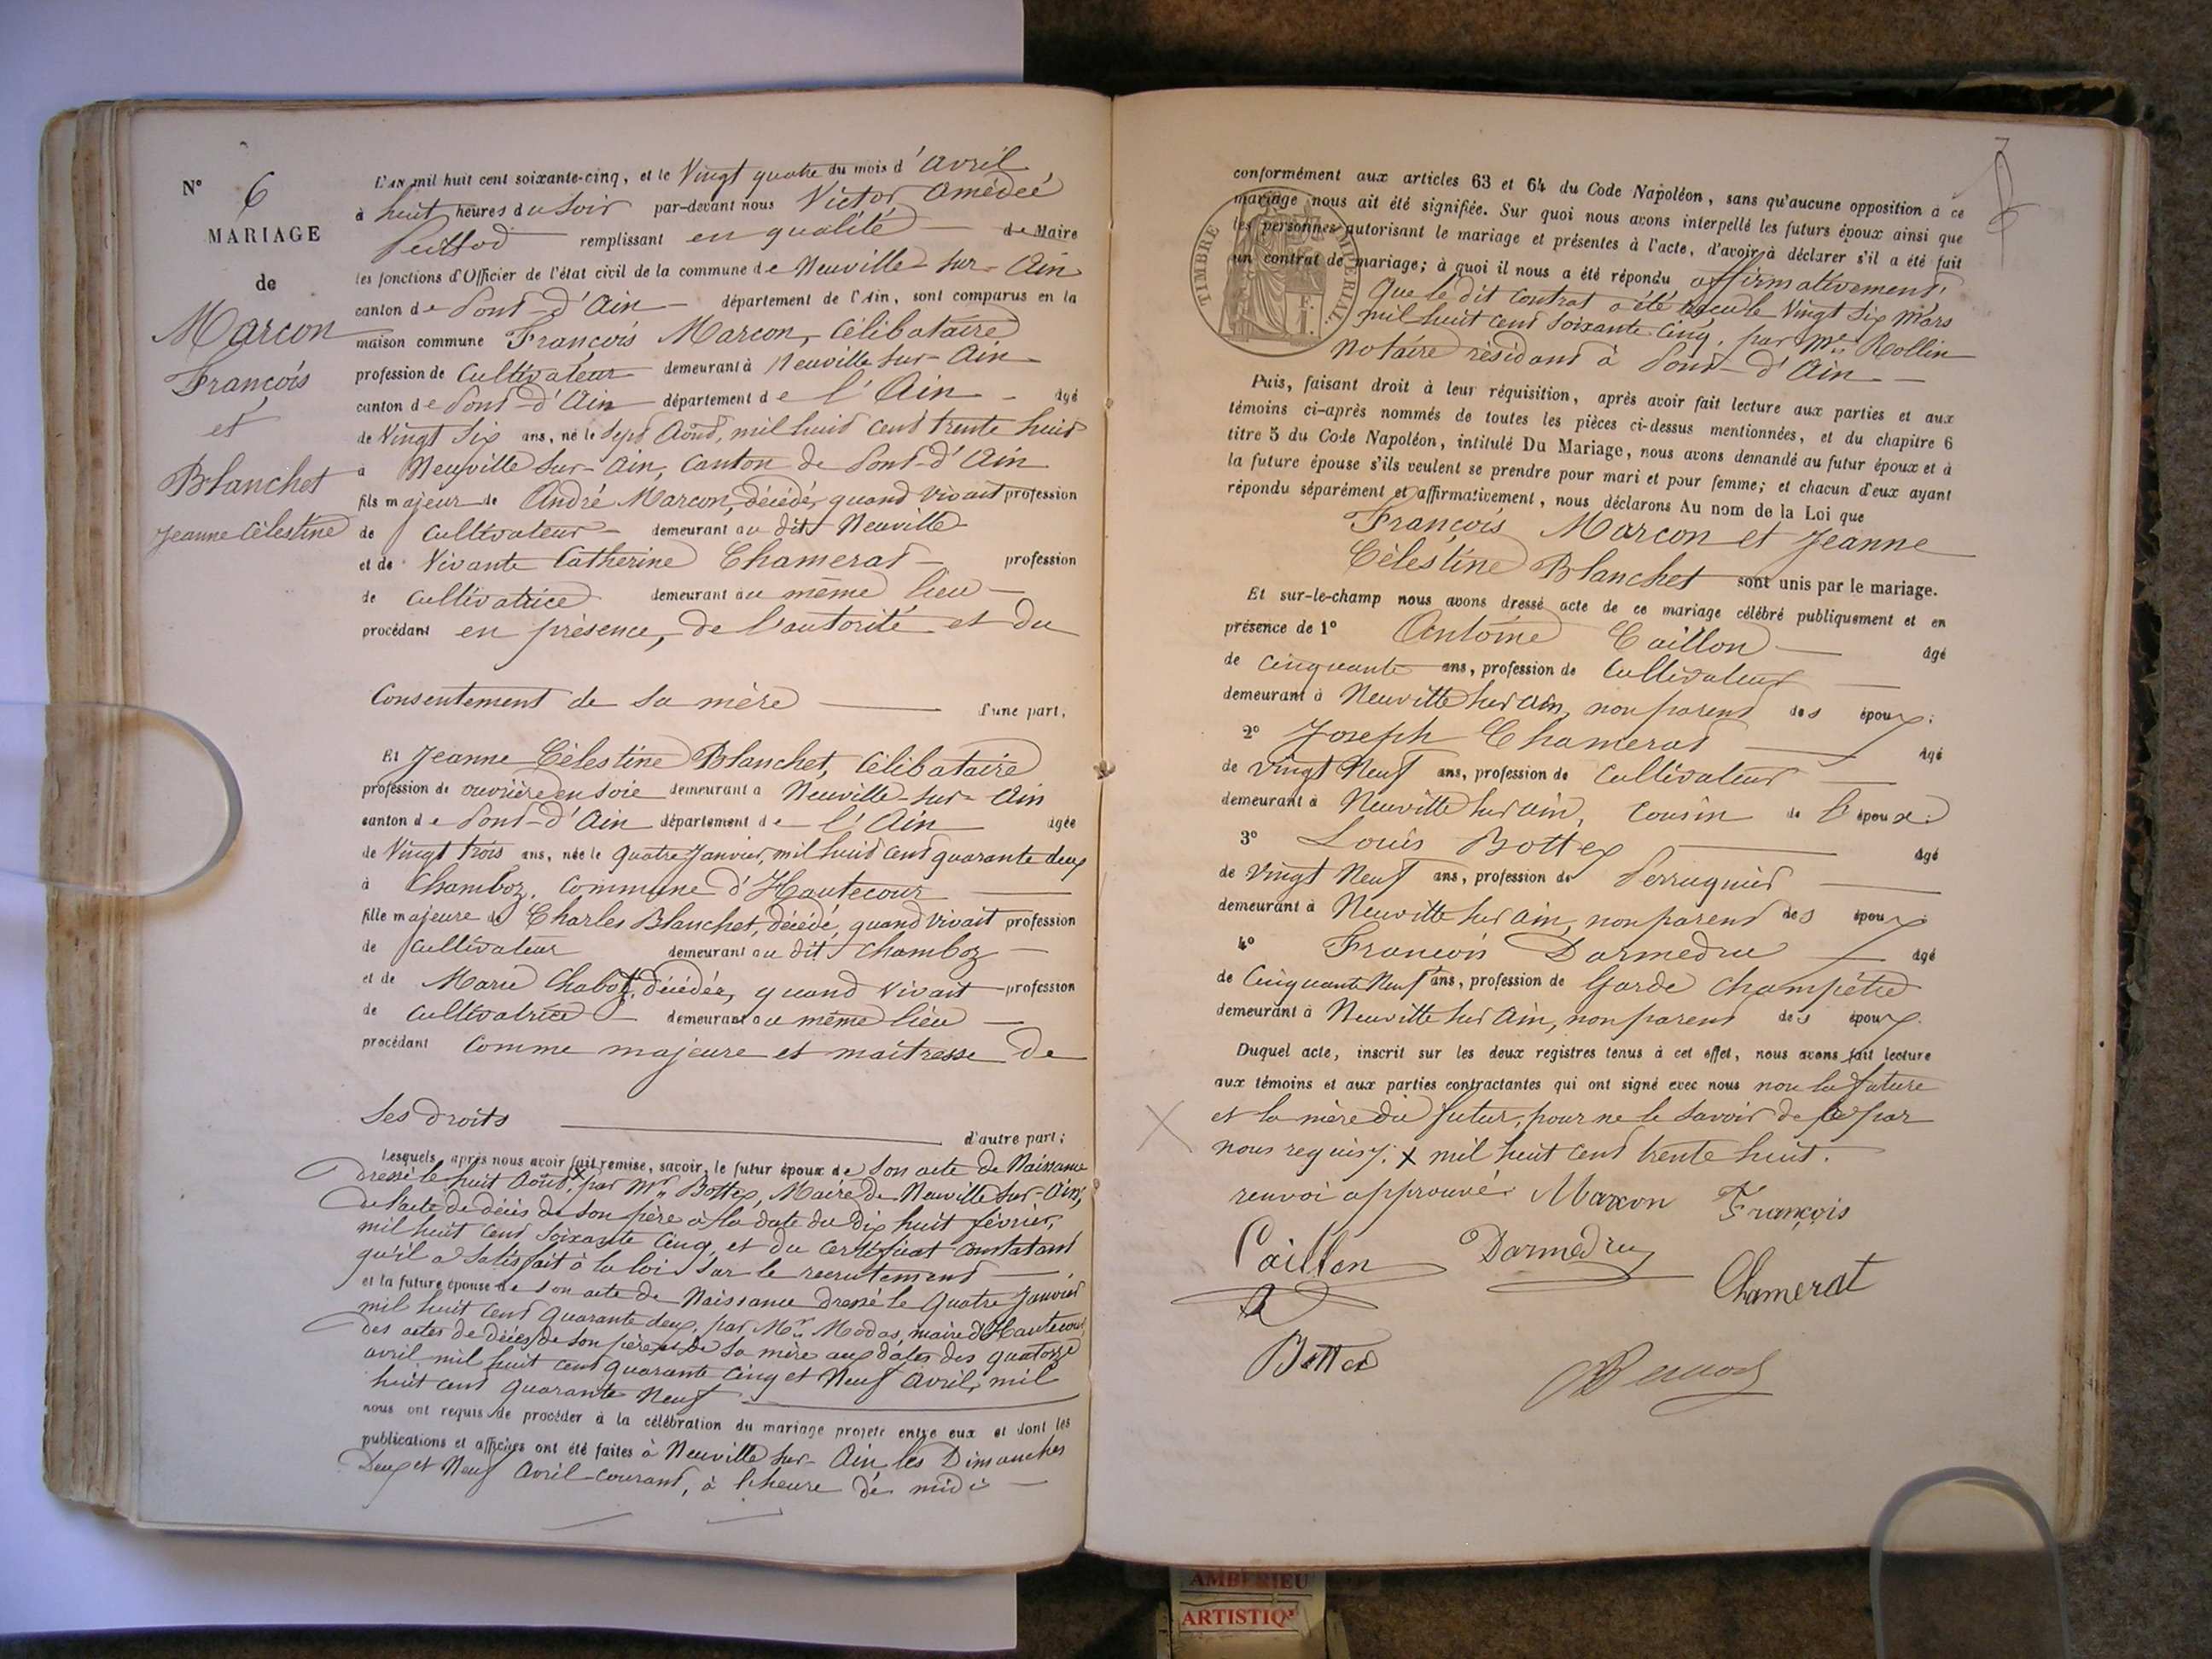 N° 6
MARIAGE
de
Marcon
François
et
Blanchet
Jeanne Célestine
L'AN mil huit cent soixante-cinq, et le Vingt quatre du mois d'avril
à huit heures du Soir par-devant nous Victor Amédée
remplissant en qualité de Maire
les fonctions d'Officier de l'état civil de la commune de Neuville-sur-Ain
canton de Pont-d'Ain département de l'Ain, sont comparus en la
maison commune François Marcon, Célibataire
profession de Cultivateur demeurant à Neuville sur-Ain
canton de Pont-d'Ain département de l'Ain âgé
de Vingt Six ans, né le Sept Août, mil huit cent trente huit
à Neuville sur-Ain, Canton de Pont-d'Ain
fils majeur de André Marcon, décédé, quand vivait profession
de Cultivateur demeurant au dit Neuville
et de Vivante Catherine Chamerat profession
de Cultivatrice demeurant au même lieu
procédant en présence, de l'autorité et du
Consentement de sa mère d'une part,
Et Jeanne Célestine Blanchet, Célibataire
profession de ouvrière en soie demeurant à Neuville-sur-Ain
canton de Pont-d'Ain département de l'Ain âgée
de Vingt trois ans, née le quatre Janvier, mil huit cent quarante deux
à Chamboz, Commune d'Hautecour
fille majeure de Charles Blanchet, décédé, quand vivait profession
de Cultivateur demeurant au dit Chamboz
et de Marie Chabot, décédée, quand vivait profession
de Cultivatrice demeurant au même lieu
procédant Comme majeure et maîtresse de
Ses droits d'autre part;
Lesquels, après nous avoir fait remise, savoir, le futur époux de Son acte de Naissance
dressé le huit Août, x par Mr Bottex, Maire de Neuville sur-Ain,
de l'acte de décès de son père à la date du Dix huit février,
mil huit cent soixante cinq, et du certificat constatant
qu'il a satisfait à la loi sur le recrutement
et la future épouse de son acte de Naissance dressé le quatre Janvier
mil huit cent quarante deux, par Mr Modas, maire d'Hautecour
des actes de décès de son père et de sa mère aux dates des quatorze
avril mil huit cent quarante cinq et Neuf Avril, mil
huit cent quarante Neuf
nous ont requis de procéder à la célébration du mariage projeté entre eux et dont les
publications et affiches ont été faites à Neuville sur-Ain les Dimanches
Deux et Neuf Avril courant, à l'heure de midi
TIMBRE IMPERIAL
conformément aux articles 63 et 64 du Code Napoléon, sans qu'aucune opposition à ce
mariage nous ait été signifiée. Sur quoi nous avons interpellé les futurs époux ainsi que
les personnes autorisant le mariage et présentes à l'acte, d'avoir à déclarer s'il a été fait
un contrat de mariage; à quoi il nous a été répondu affirmativement,
Que le dit Contrat a été le Vingt Six Mars
mil huit cent soixante cinq, par Me Rollin
Notaire résidant à Pont-d'Ain
Puis, faisant droit à leur réquisition, après avoir fait lecture aux parties et aux
témoins ci-après nommés de toutes les pièces ci-dessus mentionnées, et du chapitre 6
titre 5 du Code Napoléon, intitulé Du Mariage, nous avons demandé au futur époux et à
la future épouse s'ils veulent se prendre pour mari et pour femme; et chacun d'eux ayant
répondu séparément et affirmativement, nous déclarons Au nom de la Loi que
François Marcon et Jeanne
Célestine Blanchet sont unis par le mariage.
Et sur-le-champ nous avons dressé acte de ce mariage célébré publiquement et en
présence de 1° Antoine Caillon âgé
de Cinquante ans, profession de Cultivateur
demeurant à Neuville sur Ain, non parent des époux;
2° Joseph Chamerat âgé
de Vingt Neuf ans, profession de Cultivateur
demeurant à Neuville sur Ain, Cousin de l'époux
3° Louis Bottex âgé
de Vingt Neuf ans, profession de Perruquier
demeurant à Neuville sur Ain, non parent des époux
4° François Darmedru âgé
de Cinquante Neuf ans, profession de Garde Champêtre
demeurant à Neuville sur Ain, non parent des époux.
Duquel acte, inscrit sur les deux registres tenus à cet effet, nous avons fait lecture
aux témoins et aux parties contractantes qui ont signé avec nous non la future
et la mère du futur, pour ne le savoir de ce par
nous requis. x mil huit cent trente huit.
renvoi approuvé. Marcon François
Caillon Darmedru
Chamerat
Bottex
AMBERIEU
ARTISTIQ